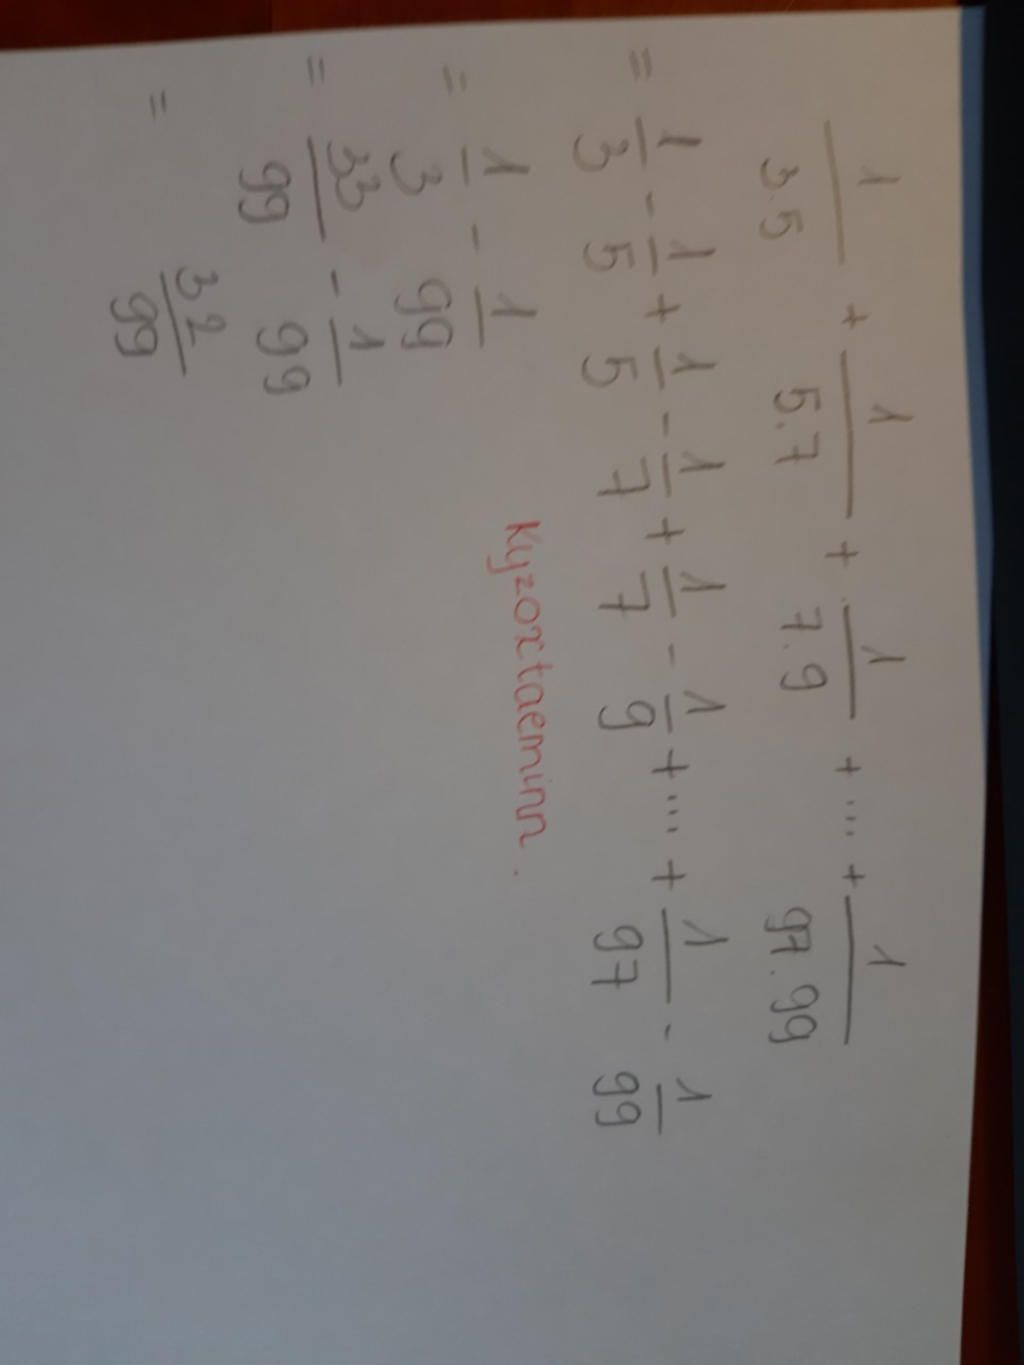 1/3.5 + 1/5.7 + 1/7.9 + ... + 1/97.99
= 1/3 - 1/5 + 1/5 - 1/7 + 1/7 - 1/9 + ... + 1/97 - 1/99
= 1/3 - 1/99
= 33/99 - 1/99
= 32/99
Kyzoxtaeminn.